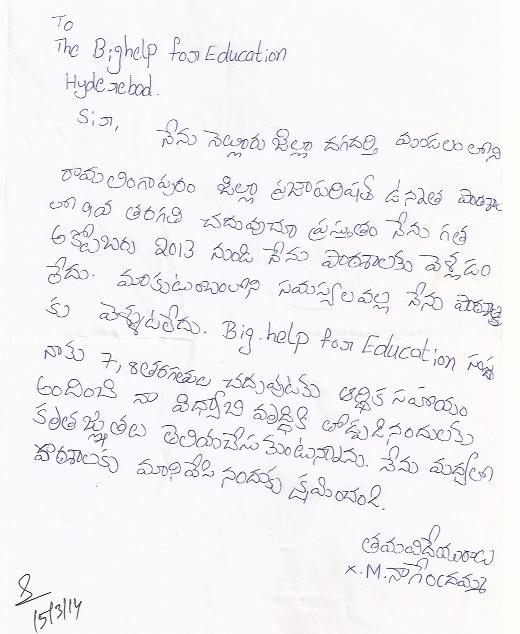 To
The Bighelp for Education
Hyderebad.
Sir,
నేను నెల్లూరు జిల్లా దగదర్తి మండలం లోని
రామలింగాపురం జిల్లా ప్రజాపరిషత్ ఉన్నత పాఠశాల
లో 9వ తరగతి చదువుచూ ప్రస్తుతం నేను గత
అక్టోబరు 2013 నుండి నేను పాఠశాలకు వెళ్లడం
లేదు. మాకుటుంబంలోని సమస్యల వల్ల నేను పాఠశాల
కు వెళ్ళుటలేదు. Big help for Education సంస్థ
నాకు 7, 8తరగతుల చదువుటకు ఆర్థిక సహాయం
అందించి నా విద్యాభి వృద్ధికి తోడ్పడినందులకు
కృతజ్ఞతలు తెలియచేసుకుంటున్నాను. నేను మధ్యలో
పాఠశాలకు మానివేసి నందుకు క్షమించండి.
తమవిదేయురాలు
x. M. నాగేంద్రమ్మ
8
15/3/14